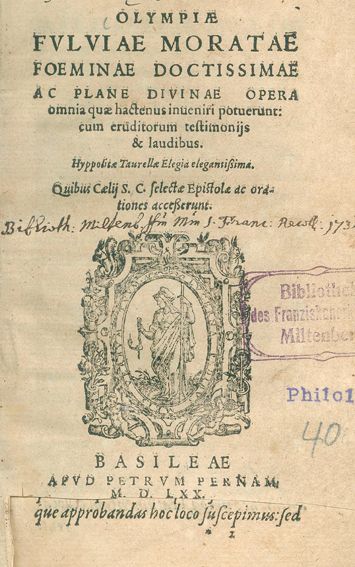 OLYMPIÆ
FVLVIAE MORATAE
FOEMINAE DOCTISSIMAE
AC PLANE DIVINAE OPERA
omnia quæ hactenus inueniri potuerunt:
cum eruditorum testimonijs
& laudibus.
Hyppolitæ Taurellæ Elegia elegantißima.
Quibus Cælij S. C. selectæ Epistolæ ac ora-
tiones acceßerunt.
Biblioth: Miltenb: Min: S. Franc: Recoll: 173
Bibliothek
des Franziskaner
Miltenber
Philol
40
BASILEAE
APVD PETRVM PERNAM
M. D. LXX.
que approbandas hoc loco suscepimus: sed
* 2